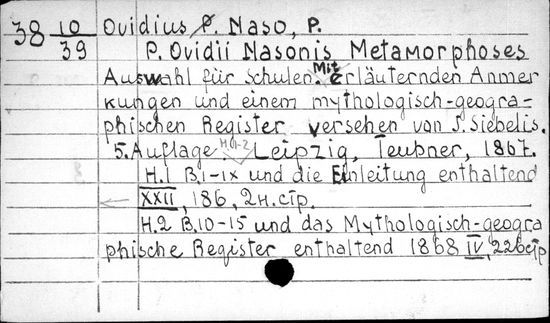 38 10/39 Ovidius P. Naso, P.
P. Ovidii Nasonis Metamorphoses
Auswahl für Schulen. Mit erläuternden Anmer
kungen und einem mythologisch-geogra-
phischen Register versehen von J. Siebelis.
5. Auflage. H.1-2 Leipzig, Teubner, 1867.
H.1 B.1-IX und die Einleitung enthaltend
XXII, 186, 2н. стр.
H.2 B.10-15 und das Mythologisch-geogra
phische Register enthaltend 1868 IV, 226стр